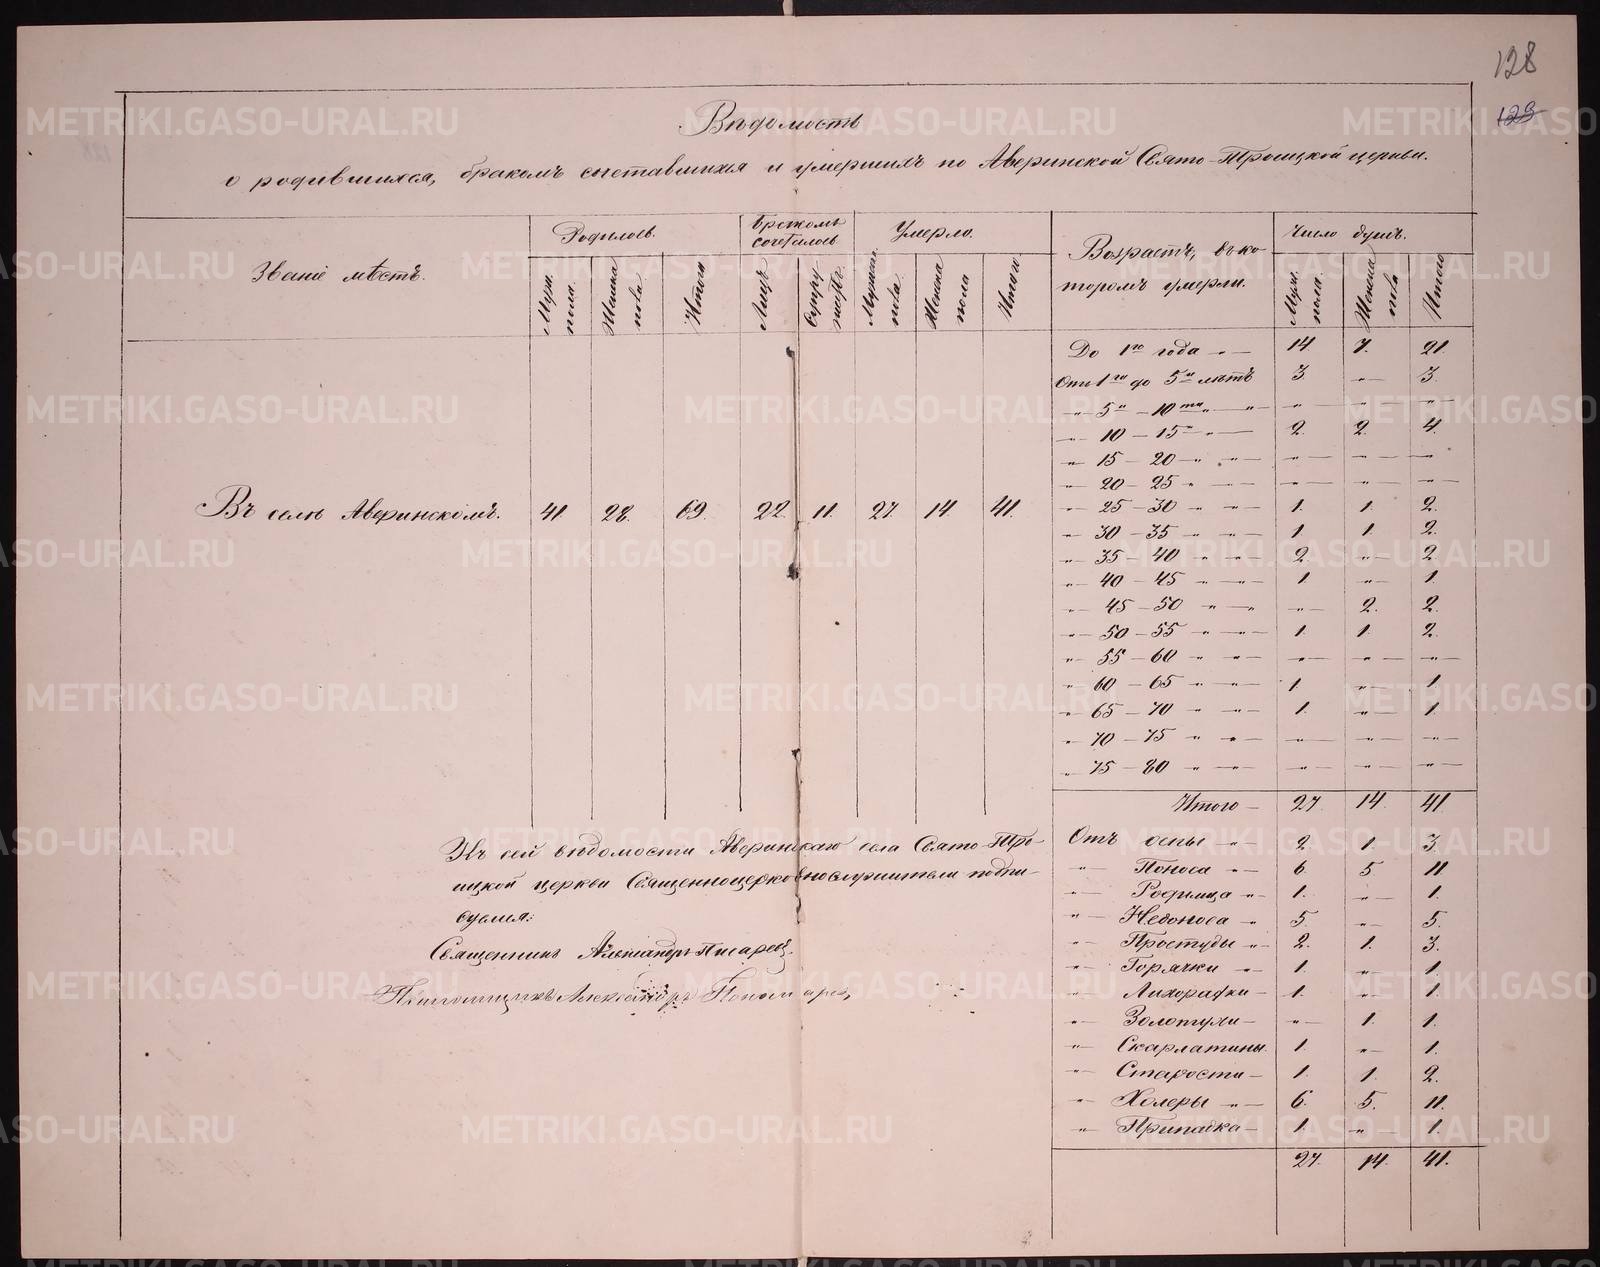 128
129
Вѣдомость
о родившихся, бракомъ сочетавшихся и умершихъ по Аверинской Свято-Троицкой церкви.
Званіе мѣстъ.
Родилось.
Бракомъ сочеталось
Умерло.
Возрастъ, въ ко-
торомъ умерли.
Число душъ.
Муж. пола.
Женска пола
Итого
Лицъ
Супружествъ
Мужск. пола.
Женска пола
Итого
Муж. пола.
Женска пола
Итого
Въ селѣ Аверинскомъ. 41. 28. 69. 22. 11. 27. 14. 41.
До 1го года „ — 14. 7. 21.
Отъ 1го до 5и лѣтъ 3. „ — 3.
„ — 5и — 10ти „ — „ — „ — „ — „ —
„ — 10 — 15 „ — 2. 2. 4.
„ — 15 — 20 — „ „ — „ — „ — „ —
„ — 20 — 25 „ „ — „ — „ — „ —
„ — 25 — 30 „ „ — 1. 1. 2.
„ — 30 — 35 „ „ — 1. 1. 2.
„ — 35 — 40 „ „ — 2. „ — 2.
„ — 40 — 45 „ „ — 1. „ — 1.
„ — 45 — 50 „ „ — „ — 2. 2.
„ — 50 — 55 „ „ — 1. 1. 2.
„ — 55 — 60 „ „ — „ — „ — „ —
„ — 60 — 65 „ „ — 1. „ — 1.
„ — 65 — 70 „ „ — 1. „ — 1.
„ — 70 — 75 „ „ — „ — „ — „ —
„ — 75 — 80 „ „ — „ — „ — „ —
Итого — 27. 14. 41
Отъ оспы „ — 2. 1. 3.
„ — Поноса „ — 6. 5 11
„ — Родимца „ — 1. „ — 1.
„ — Недоноса „ 5 „ — 5.
„ — Простуды „ — 2. 1. 3.
„ — Горячки „ — 1. „ — 1.
„ — Лихорадки — 1. „ — 1.
„ — Золотухи — „ — 1. 1.
„ — Скарлатины. 1. „ — 1.
„ — Старости — 1. 1. 2.
„ — Холеры „ — 6. 5. 11.
„ — Припадка — 1. „ — 1.
27. 14. 41.
Къ сей вѣдомости Аверинскаго села Свято-Тро-
ицкой церкви Священноцерковнослужители подпи-
суемся:
Священникъ Александръ Писаревъ.
Александръ Пономарев,
METRIKI.GASO-URAL.RU